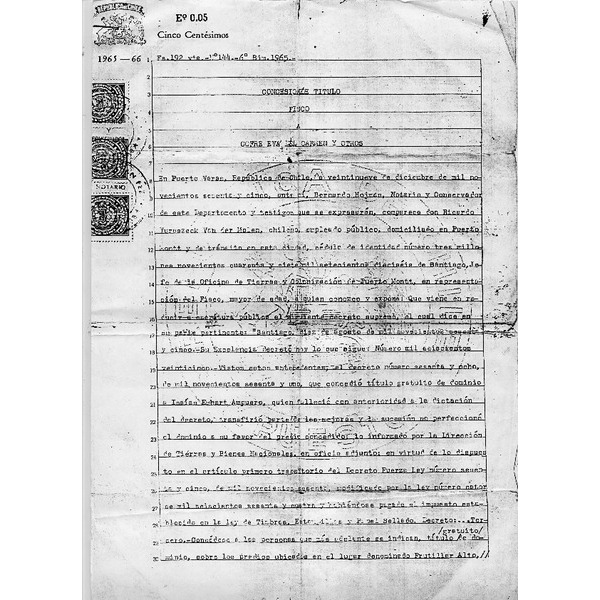 Eº 0.05
Cinco Centésimos
1965 — 66
Fs.192 vta.-Nº144.-6º Bim.1965.-
CONCESION DE TITULO
FISCO
A
COFRE EVA DEL CARMEN Y OTROS
En Puerto Varas, República de Chile, a veintinueve de diciembre de mil no-
vecientos sesenta y cinco, ante mí, Bernardo Notario y Conservador
de este Departamento y testigos que se expresarán, comparece don Ricardo
Van der Molen, chileno, empleado público, domiciliado en Puerto
Montt y de tránsito en esta ciudad, cédula de identidad número tres millo-
nes novecientos cuarenta y siete mil setecientos dieciséis de Santiago, Je-
fe de la Oficina de Tierras y Colonización de Puerto Montt, en represent-
ción del Fisco, mayor de edad, a quien conozco y expone: Que viene en re-
ducir a escritura pública el siguiente decreto supremo, el cual dice en
su parte pertinente: "Santiago, diez de agosto de mil novecientos sesenta
y cinco.-Su Excelencia decretó hoy lo que sigue: Número mil seiscientos
veinticinco.-Vistos estos antecedentes; el decreto número sesenta y ocho,
de mil novecientos sesenta y uno, que concedió título gratuito de dominio
a Ampuero, quien falleció con anterioridad a la dictación
del decreto, transfirió parte de las mejoras y la sucesión no perfeccionó
el dominio a su favor del predio concedido; lo informado por la Dirección
de Tierras y Bienes Nacionales, en oficio adjunto; en virtud de lo dispues
to en el artículo primero transitorio del Decreto Fuerza Ley número sesen-
ta y cinco, de mil novecientos sesenta, modificado por la ley número cator
ce mil seiscientos sesenta y cuatro y habiéndose pagado el impuesto esta-
blecido en la ley de Timbres, Estampillas y Papel Sellado, Decreto:...Ter-
/gratuito/
cero.-Concédese a las personas que más adelante se indican, título de do-
minio, sobre los predios ubicados en el lugar denominado Frutillar Alto,//
NOTARIO